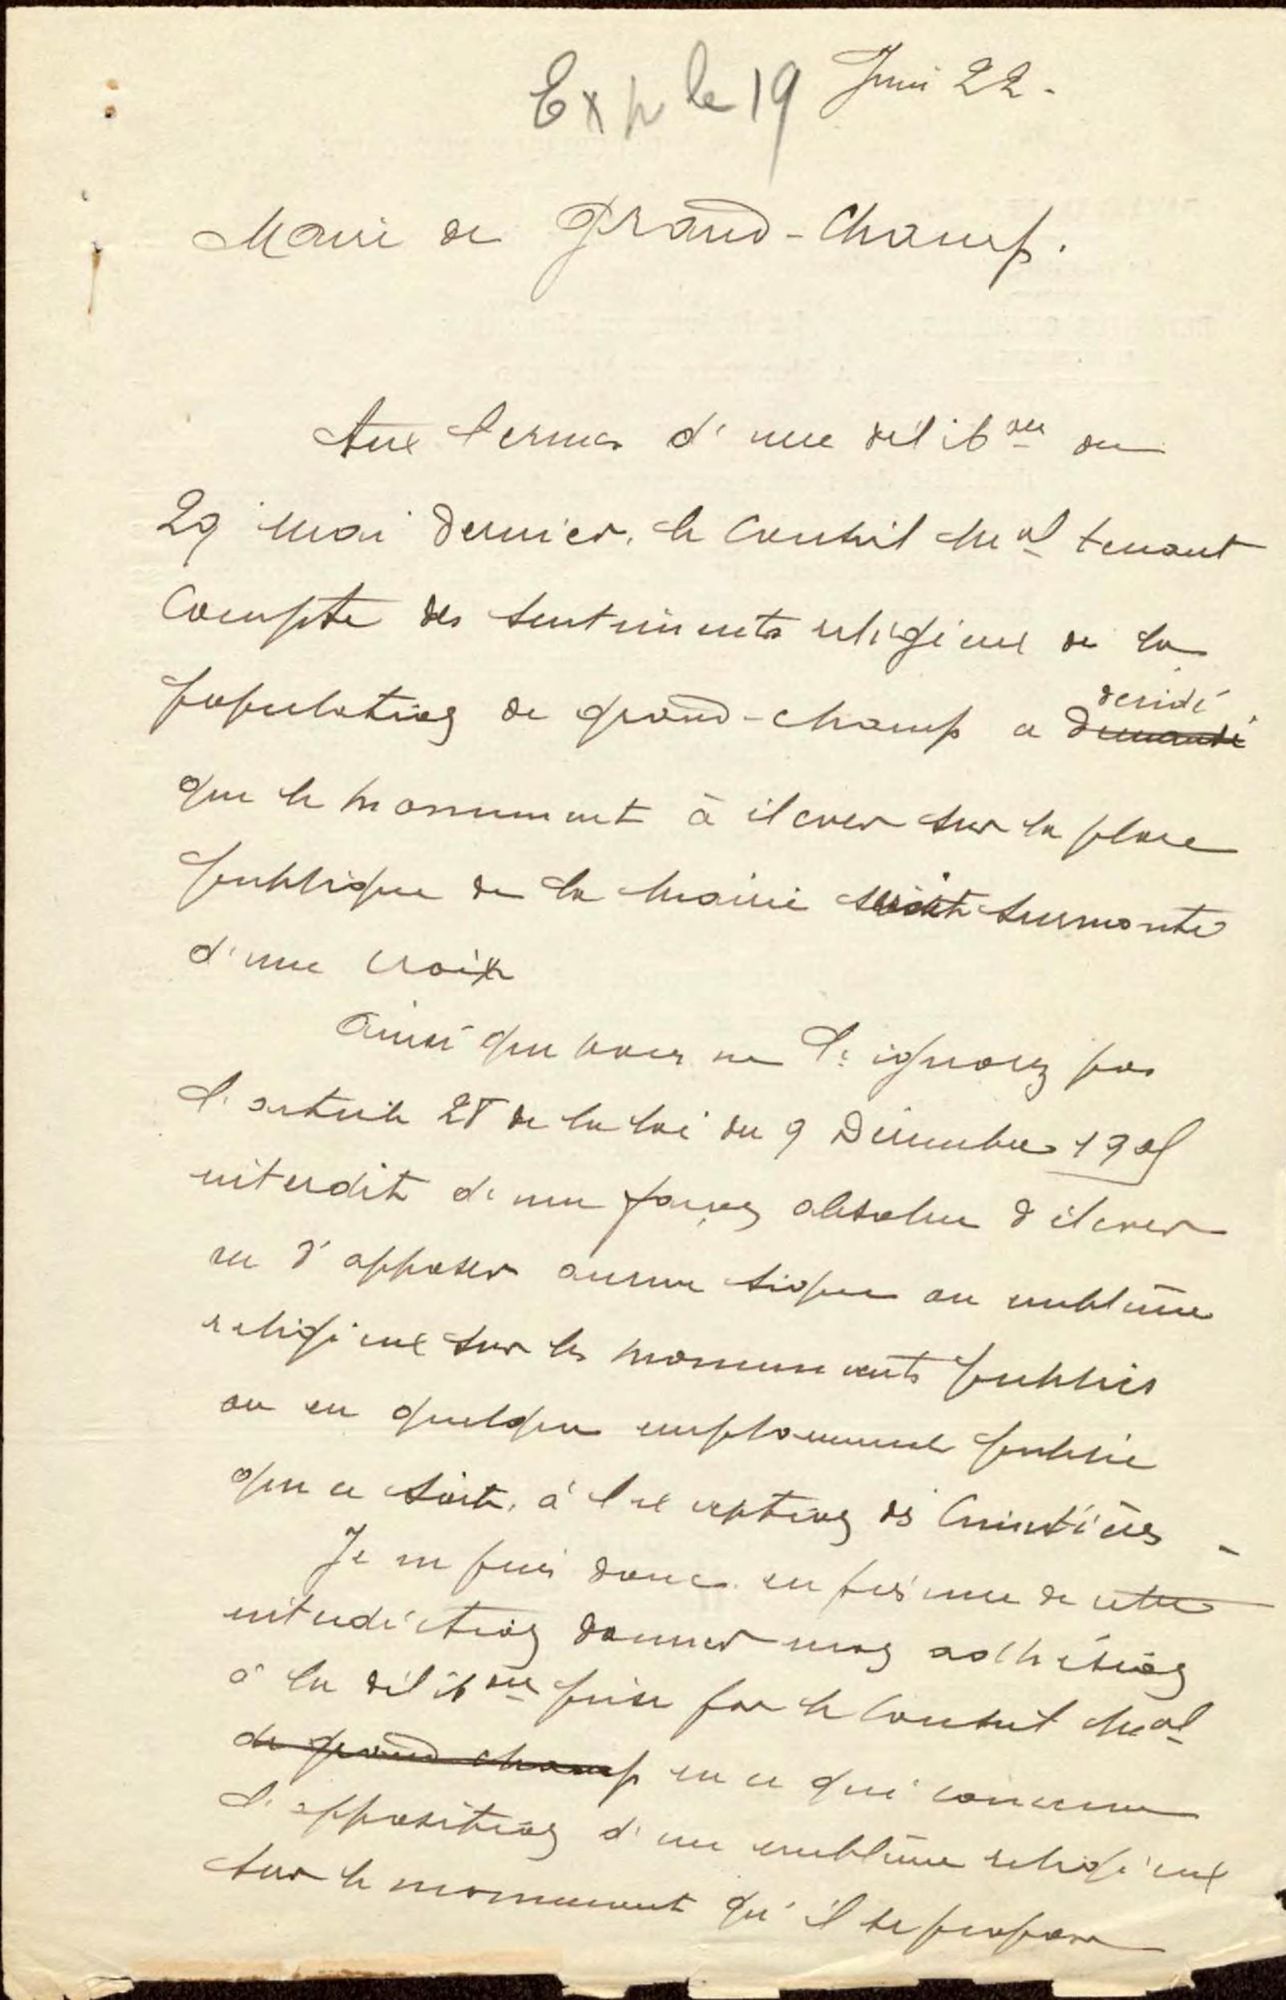 Exp le 19 Juin 22.
Maire de Grand-Champ.
Aux termes d'une délibon du
29 mai dernier, le Conseil Mal tenant
Compte des sentiments religieux de la
population de Grand-Champ a demandé décidé
que le monument à élever sur la place
publique de la Mairie serait surmonté
d'une croix
Ainsi que vous ne l'ignorez pas
l'article 28 de la loi du 9 Décembre 1905
interdit d'une façon absolue d'élever
ou d'apposer aucun signe ou emblème
religieux sur les monuments publics
ou en quelque emplacement public
que ce soit, à l'exception des Cimetières -
Je ne puis donc en présence de cette
interdiction donner mon adhésion
à la délibon prise par le Conseil Mal
de Grand Champ en ce qui concerne
l'apposition d'un emblème religieux
sur le monument qu'il se propose